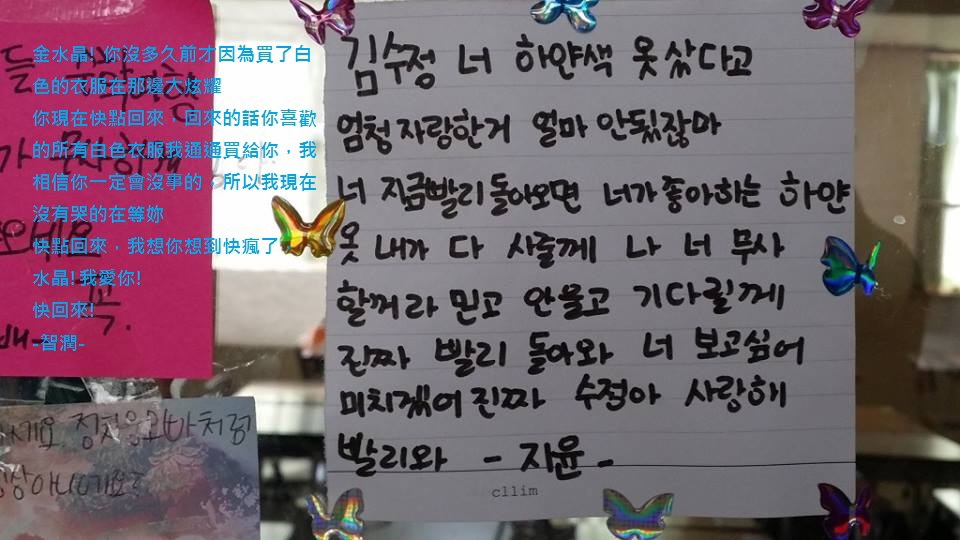 金水晶! 你沒多久前才因為買了白
色的衣服在那邊大炫耀
你現在快點回來，回來的話你喜歡
的所有白色衣服我通通買給你，我
相信你一定會沒事的，所以我現在
沒有哭的在等妳
快點回來，我想你想到快瘋了
水晶! 我愛你!
快回來!
-智潤-
김수정 너 하얀색 옷 샀다고
엄청 자랑한거 얼마 안됬잖아
너 지금빨리 돌아오면 너가 좋아하는 하얀
옷 내가 다 사줄께 나 너 무사
할꺼라 믿고 안울고 기다릴께
진짜 빨리 돌아와 너 보고싶어
미치겠어 진짜 수정아 사랑해
빨리와 - 지윤 -
cllim
들
가 무사하게
오세요
꼭.
세요 정차웅오빠처럼